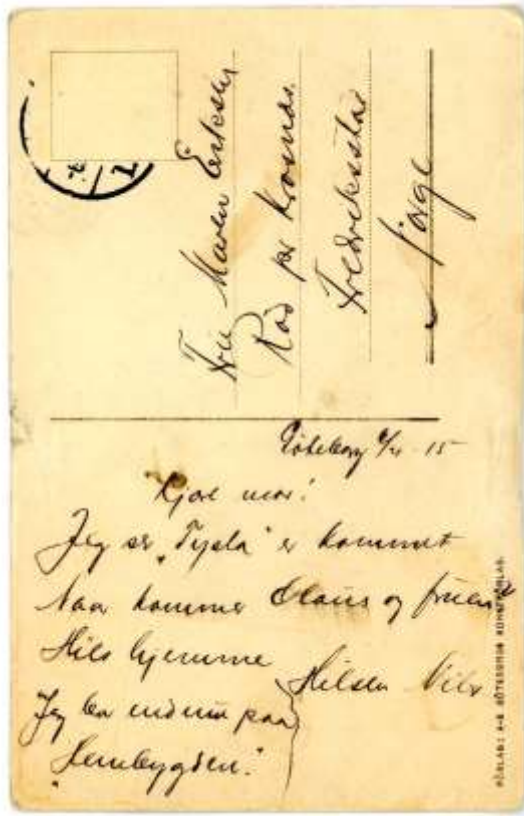 Fru Maren Eriksen
Råd pr Krosnes.
Fredriksstad
Norge
Göteborg 15
Kjære mor!
Jeg ser „Tysla" er kommet
Naar kommer Claus og fruen?
Hils hjemme
Hilsen
Jeg bor endnu paa
„Hembygden."
FÖRLAG: A-B GÖTEBORGS KONSTFÖRLAG.